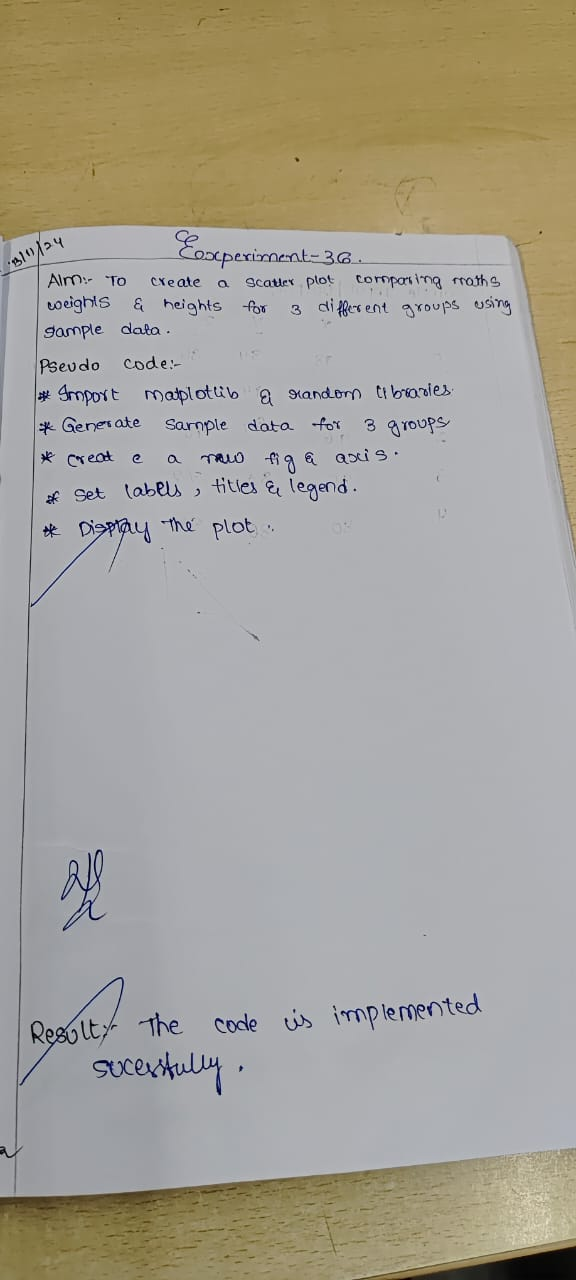 13/11/24
Experiment-36.
AIm:- To create a scatter plot comparing maths
weights & heights for 3 different groups using
sample data.
Pseudo code:-
* Import matplotlib & random libraries.
* Generate sample data for 3 groups
* Create a new fig & axis.
* Set labels, titles & legend.
* Display the plot.
Result:- The code is implemented
sucessfully.